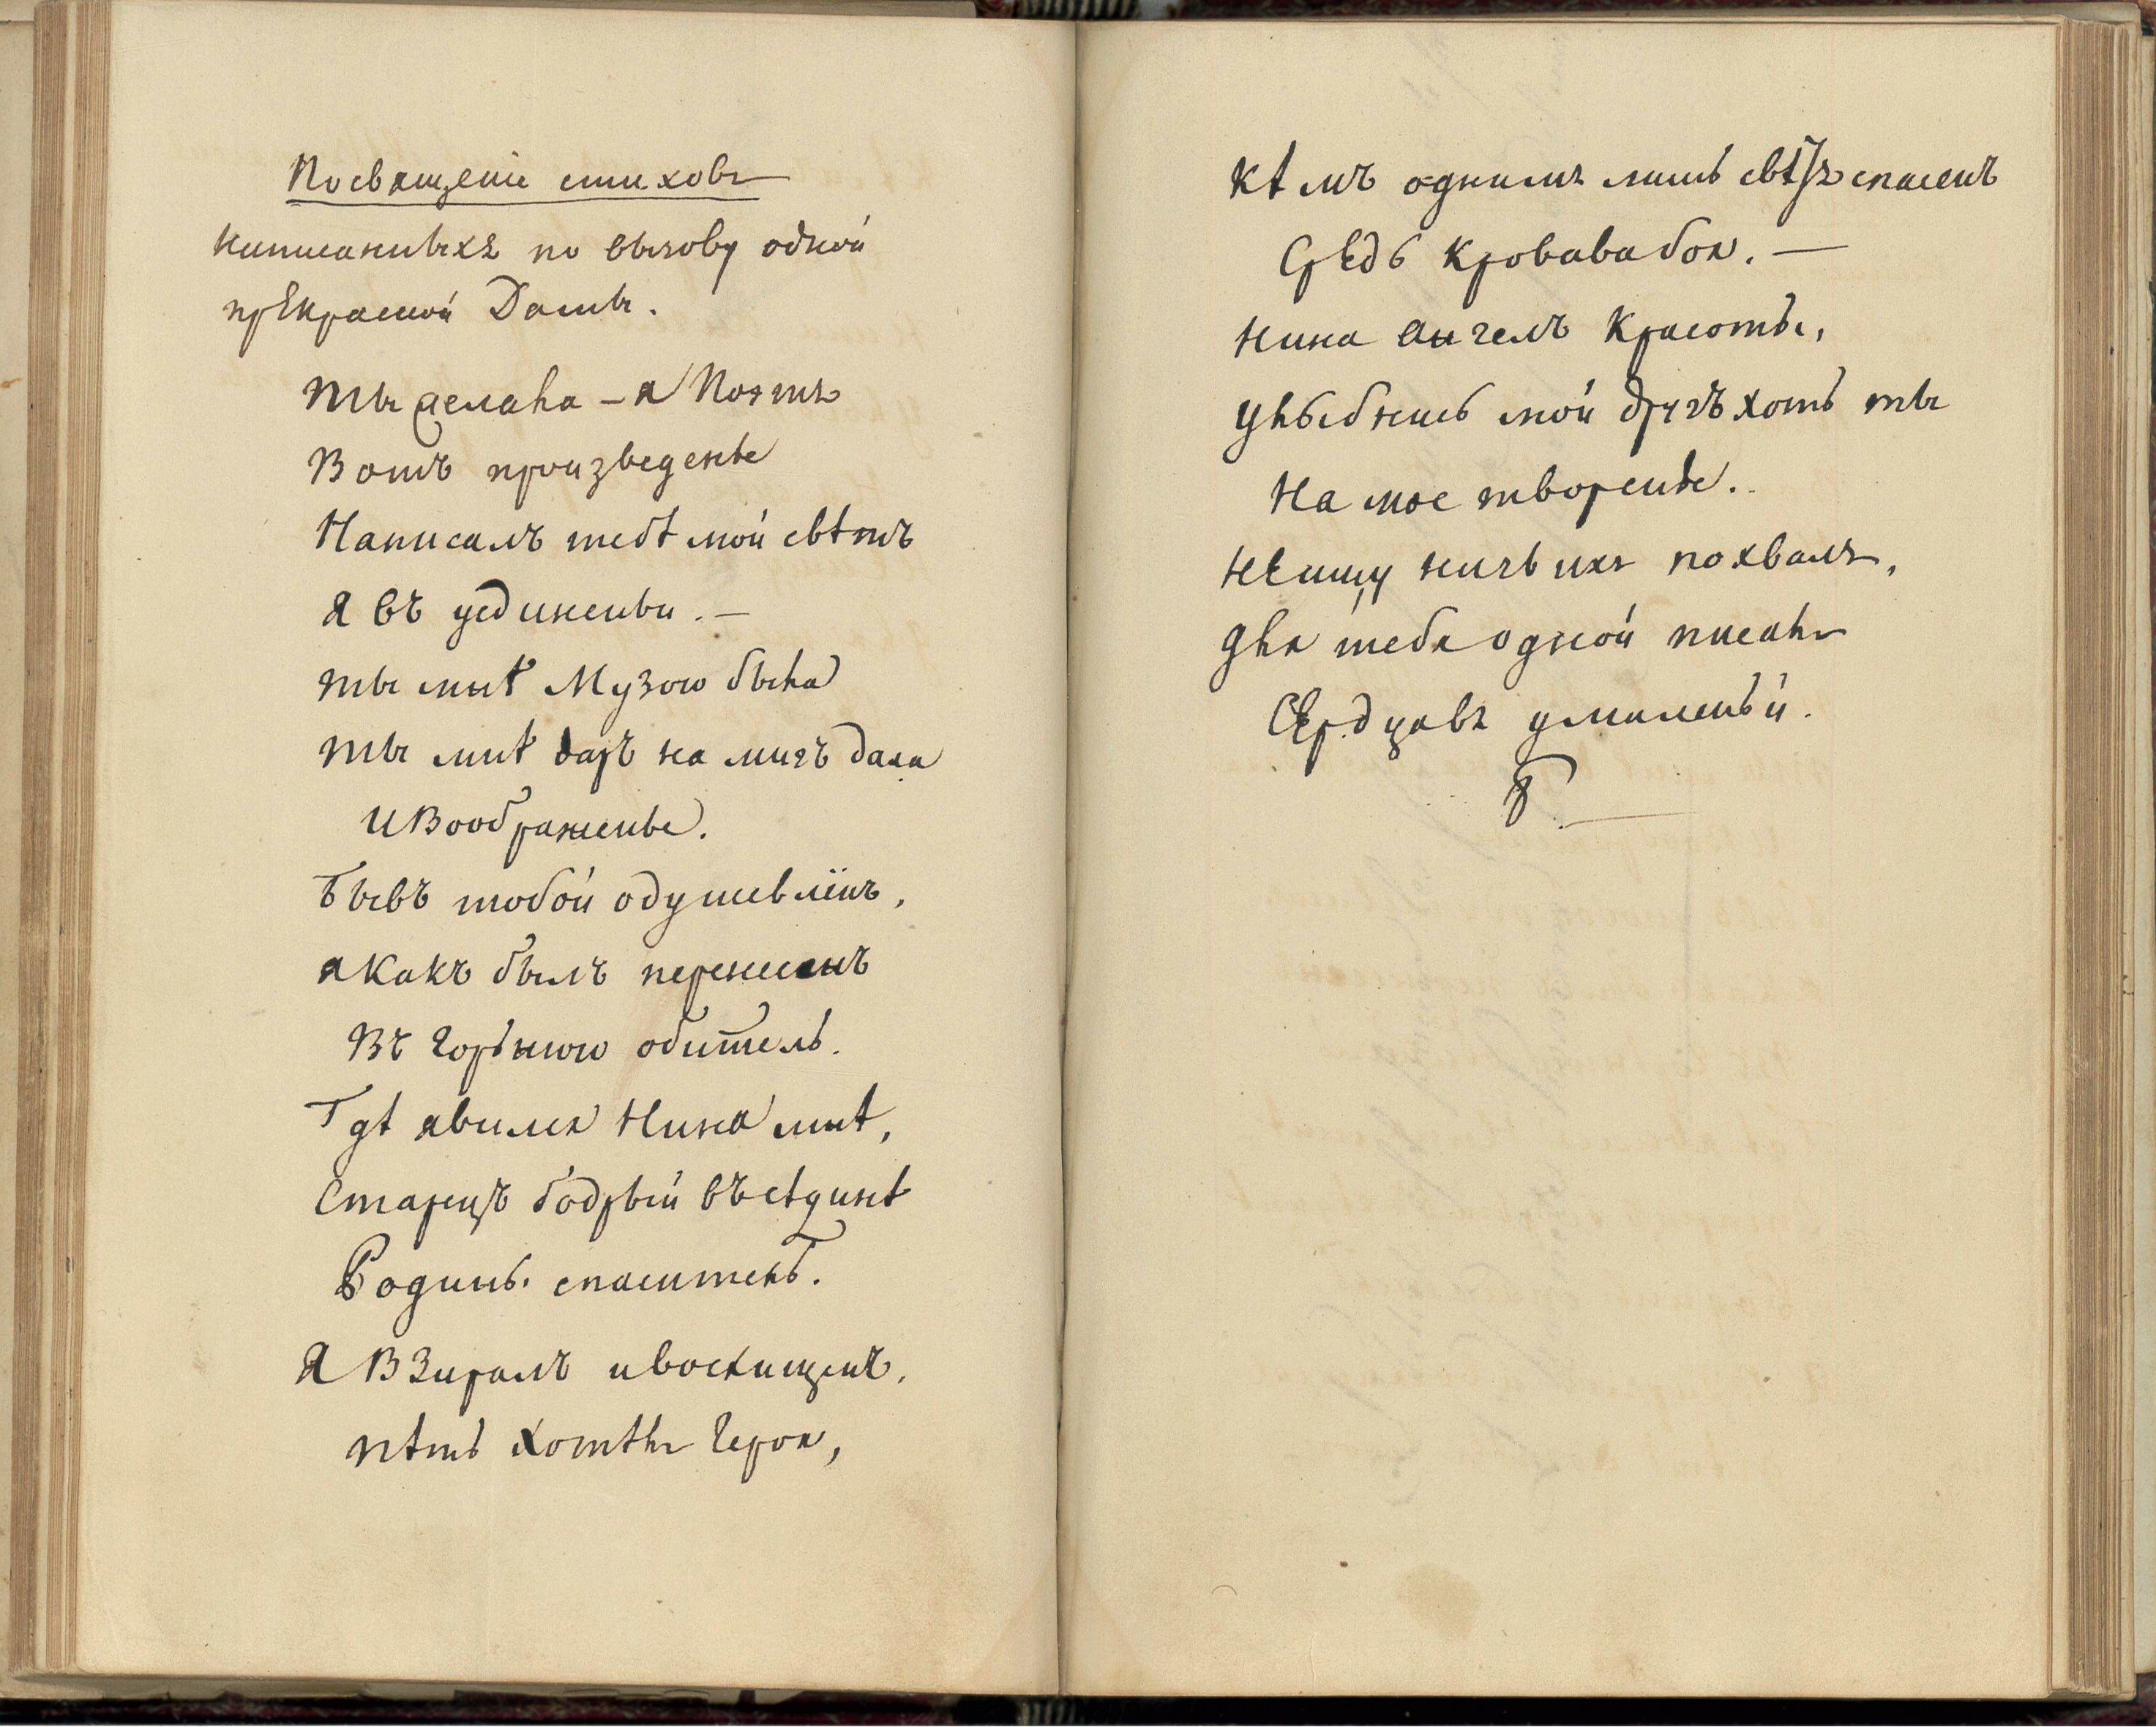 Посвященіе стиховъ
написанныхъ по вызову одной
прекрасной Дамы.
ты желала – я Поэтъ
Вотъ произведенье
Написалъ тебѣ мой свѣтъ
Я въ уединеньи. –
ты мнѣ Музою была
ты мнѣ даръ на мигъ дала
И Воображенье.
Бывъ тобой одушевлёнъ,
я какъ былъ перенесенъ
Въ Горьнюю обитель.
Гдѣ явился Нина мнѣ,
Старецъ бодрый въ сѣдинѣ
Родины спаситель.
Я Взиралъ и восхищенъ,
пѣть хотѣлъ Героя,
кѣмъ однимъ лишь свѣтъ спасенъ
Средь кровава боя. –
Нина Ангелъ Красоты,
улыбнись мой другъ хоть ты
На мое творенье.
не ищу ничьихъ похвалъ,
для тебя одной писалъ
Сердцавъ умиленьи.